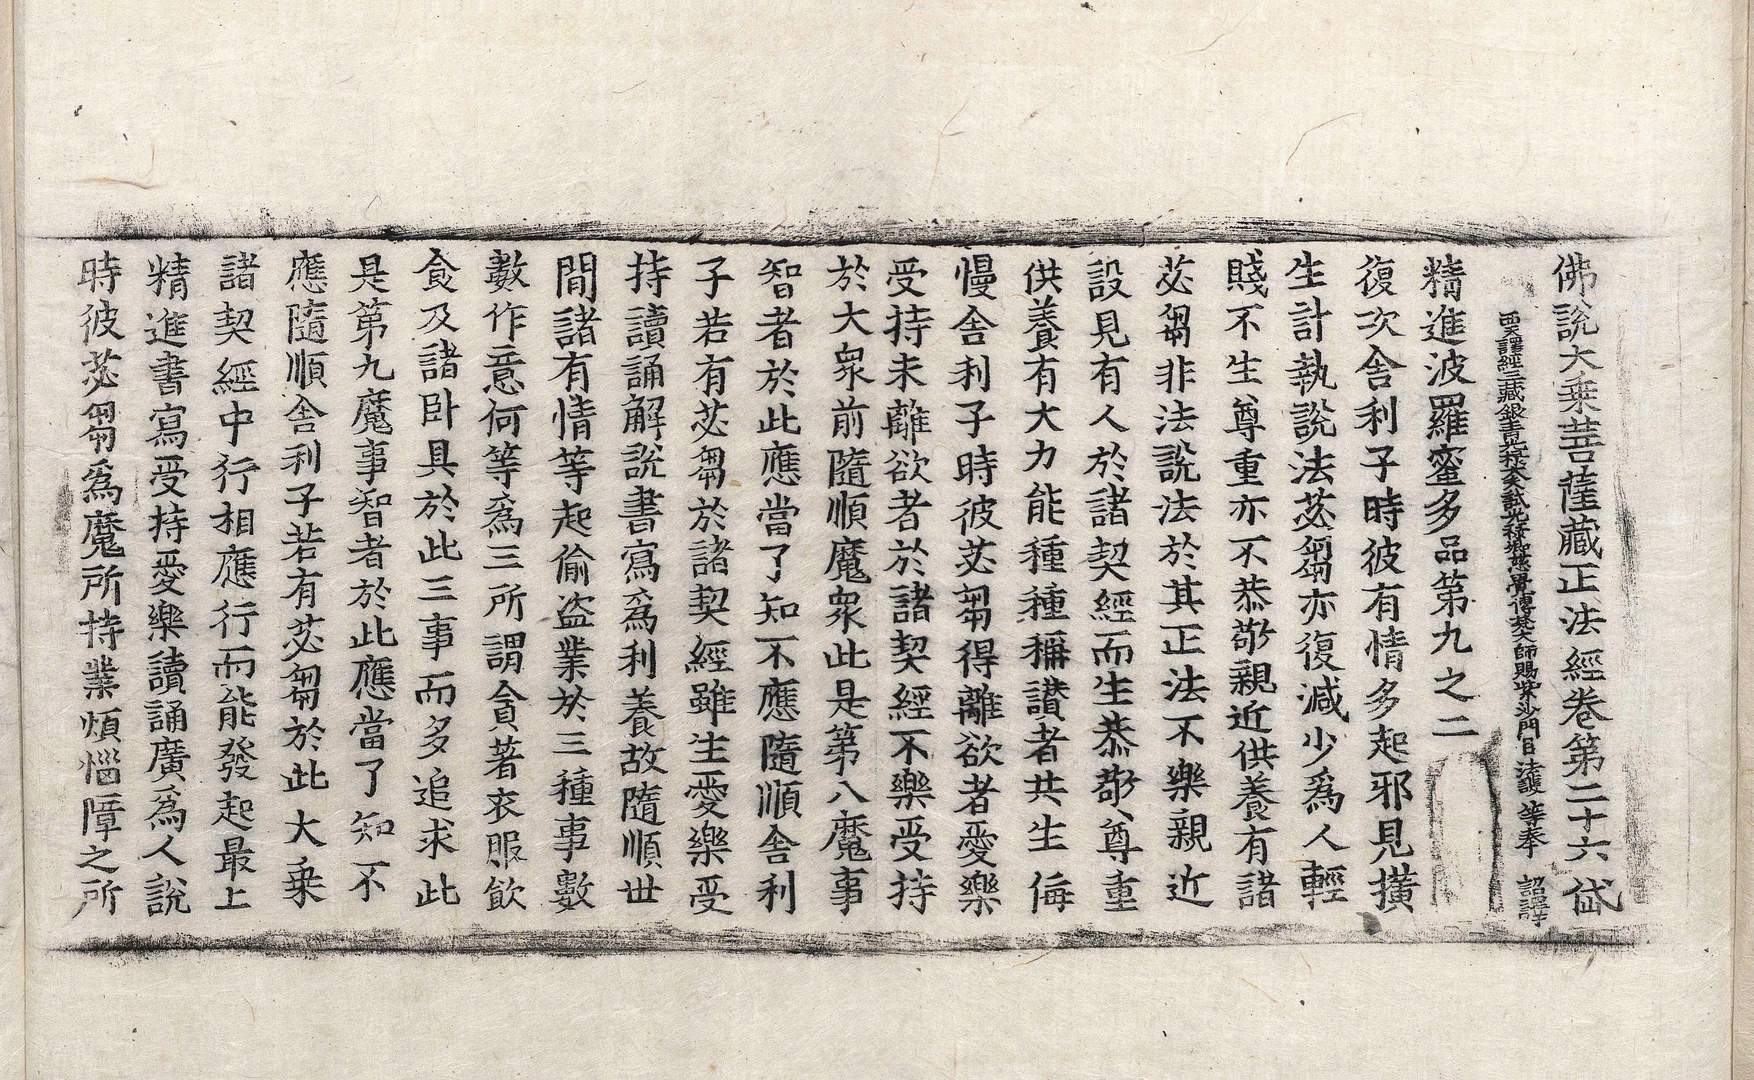 佛說大乘菩薩藏正法經卷第二十六 岱
西天譯經三藏銀青光祿大夫試光祿卿普覺傳梵大師賜紫沙門臣法護等奉 詔譯
精進波羅蜜多品第九之二
復次舍利子時彼有情多起邪見撗
生計執說法苾芻亦復減少爲人輕
賤不生尊重亦不恭敬親近供養有諸
苾芻非法說法於其正法不樂親近
設見有人於諸契經而生恭敬尊重
供養有大力能種種稱讃者共生侮
慢舍利子時彼苾芻得離欲者愛樂
受持未離欲者於諸契經不樂受持
於大衆前隨順魔衆此是第八魔事
智者於此應當了知不應隨順舍利
子若有苾芻於諸契經雖生愛樂受
持讀誦解說書寫爲利養故隨順世
間諸有情等起偷盗業於三種事數
數作意何等爲三所謂貪著衣服飲
食及諸卧具於此三事而多追求此
是第九魔事智者於此應當了知不
應隨順舍利子若有苾芻於此大乘
諸契經中行相應行而能發起最上
精進書寫受持愛樂讀誦廣爲人說
時彼苾芻爲魔所持業煩惱障之所